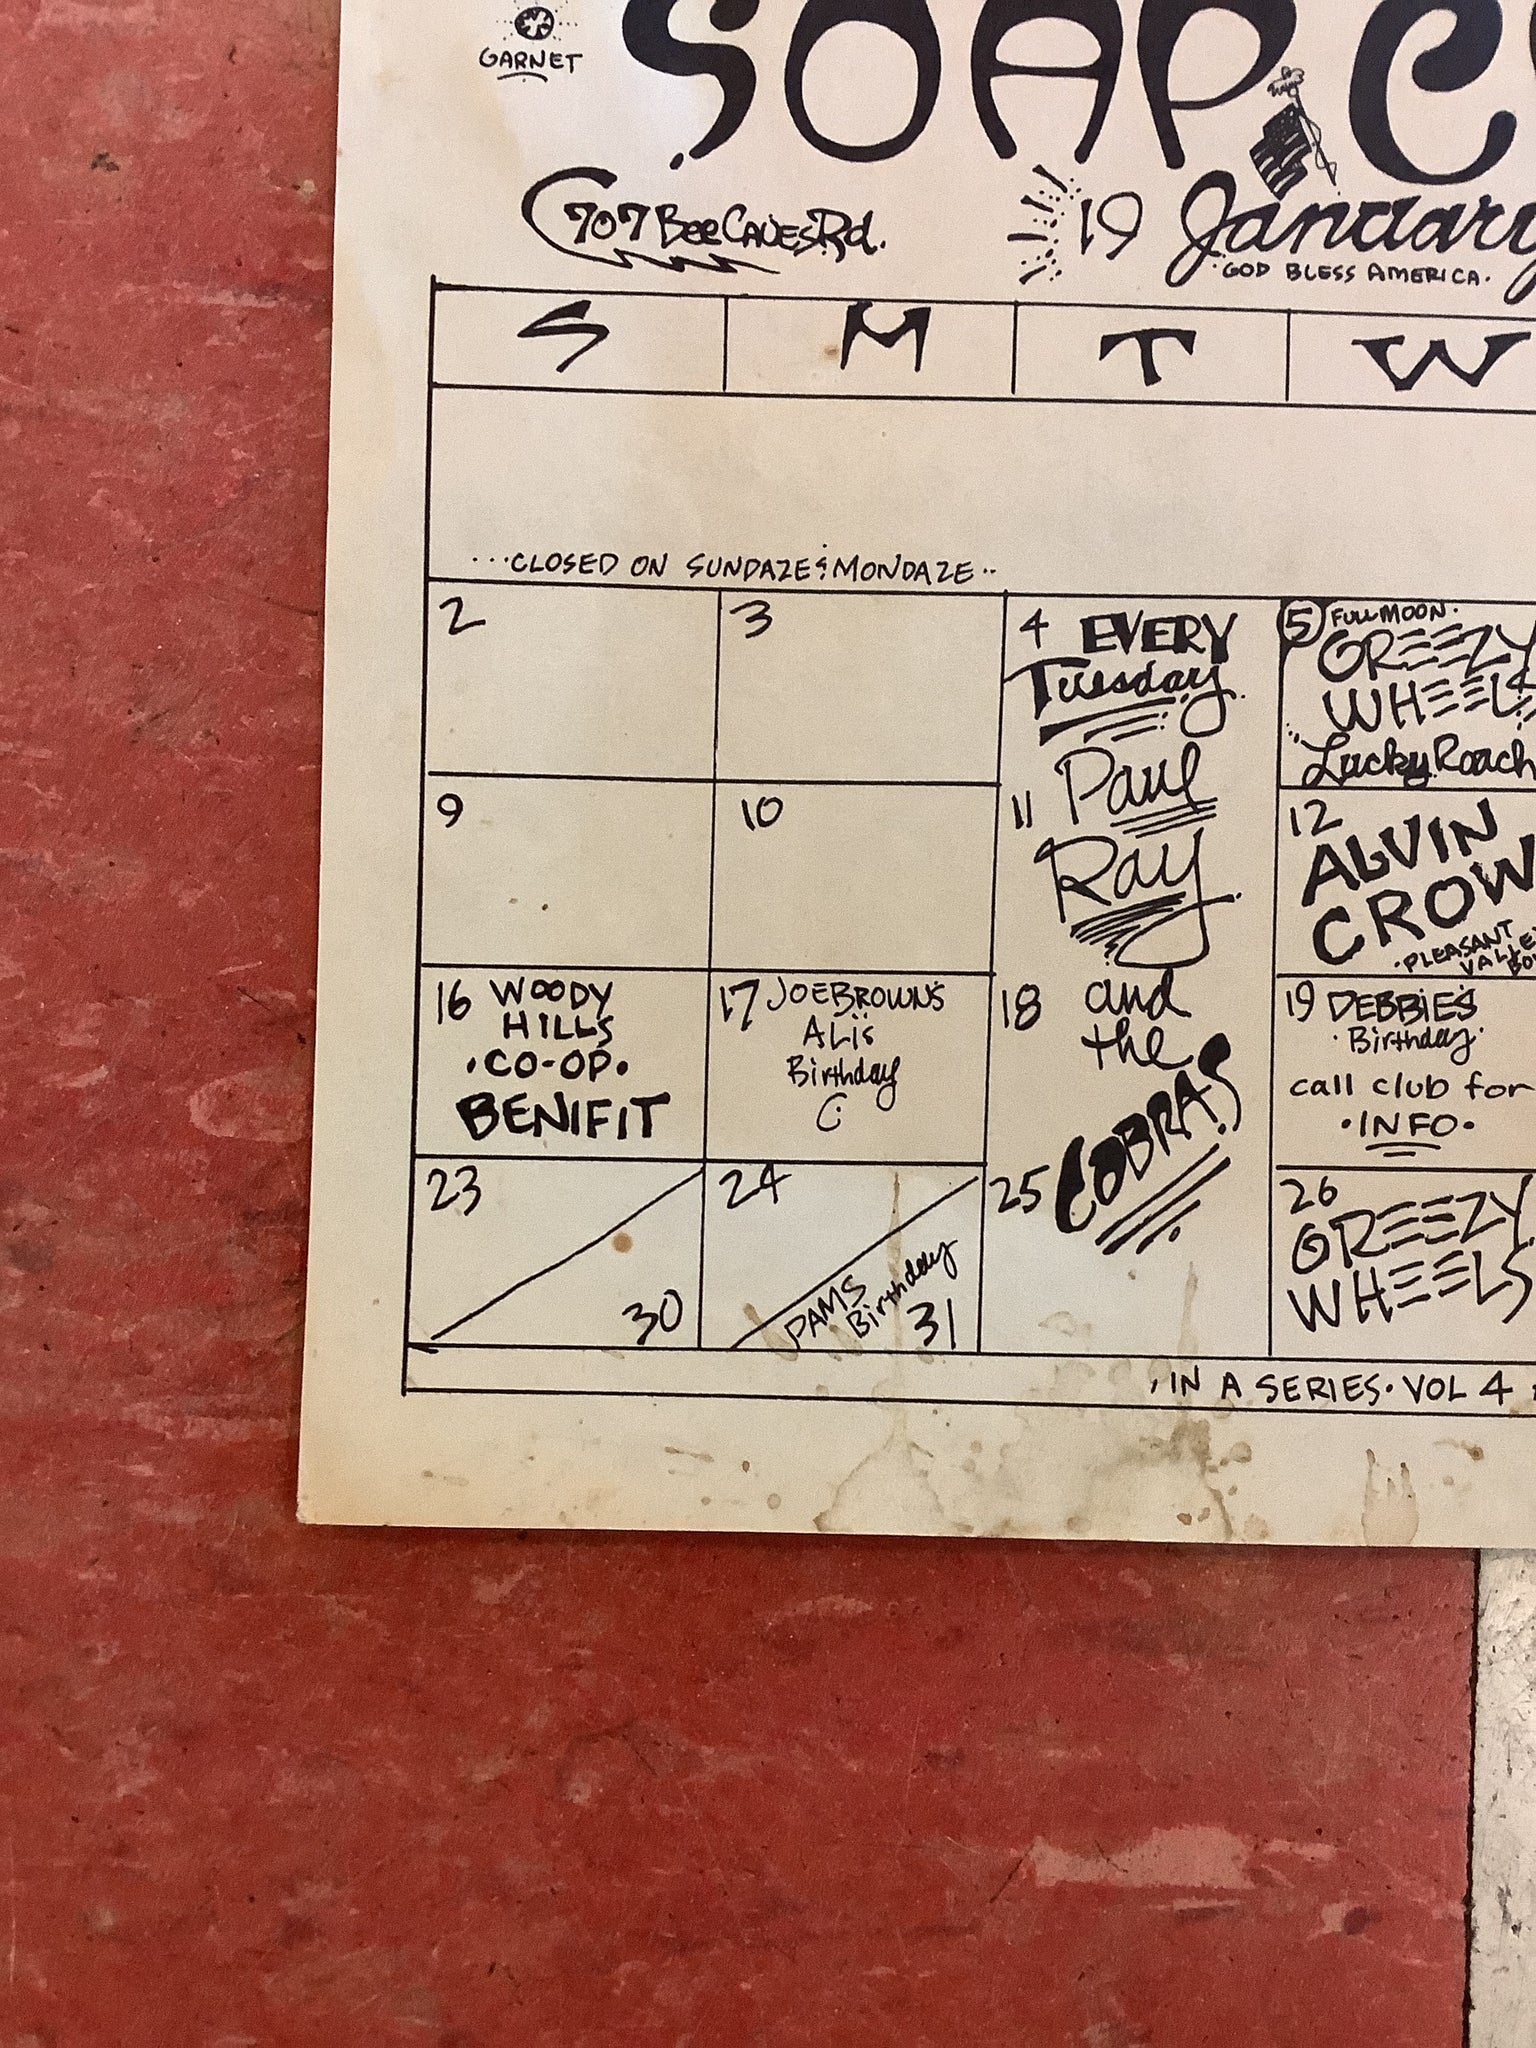 GARNET
SOAP C
707 Bee CAVES Rd.
19 January
GOD BLESS AMERICA.
S M T W
...CLOSED ON SUNDAZE & MONDAZE..
2
3
4 EVERY
Tuesday
Paul
11
Ray
18 and
the
COBRAS
25
5 FULL MOON.
GREEZY
WHEELS
Lucky Roach
9
10
12
ALVIN
CROW
.PLEASANT
VALLE
BO
16 WOODY
HILLS
.CO-OP.
BENIFIT
17 JOE BROWN'S
ALi's
Birthday
19 DEBBIE'S
.Birthday.
call club for
.INFO.
23
30
24
PAMS
Birthday
31
26
GREEZY
WHEELS
IN A SERIES. VOL 4